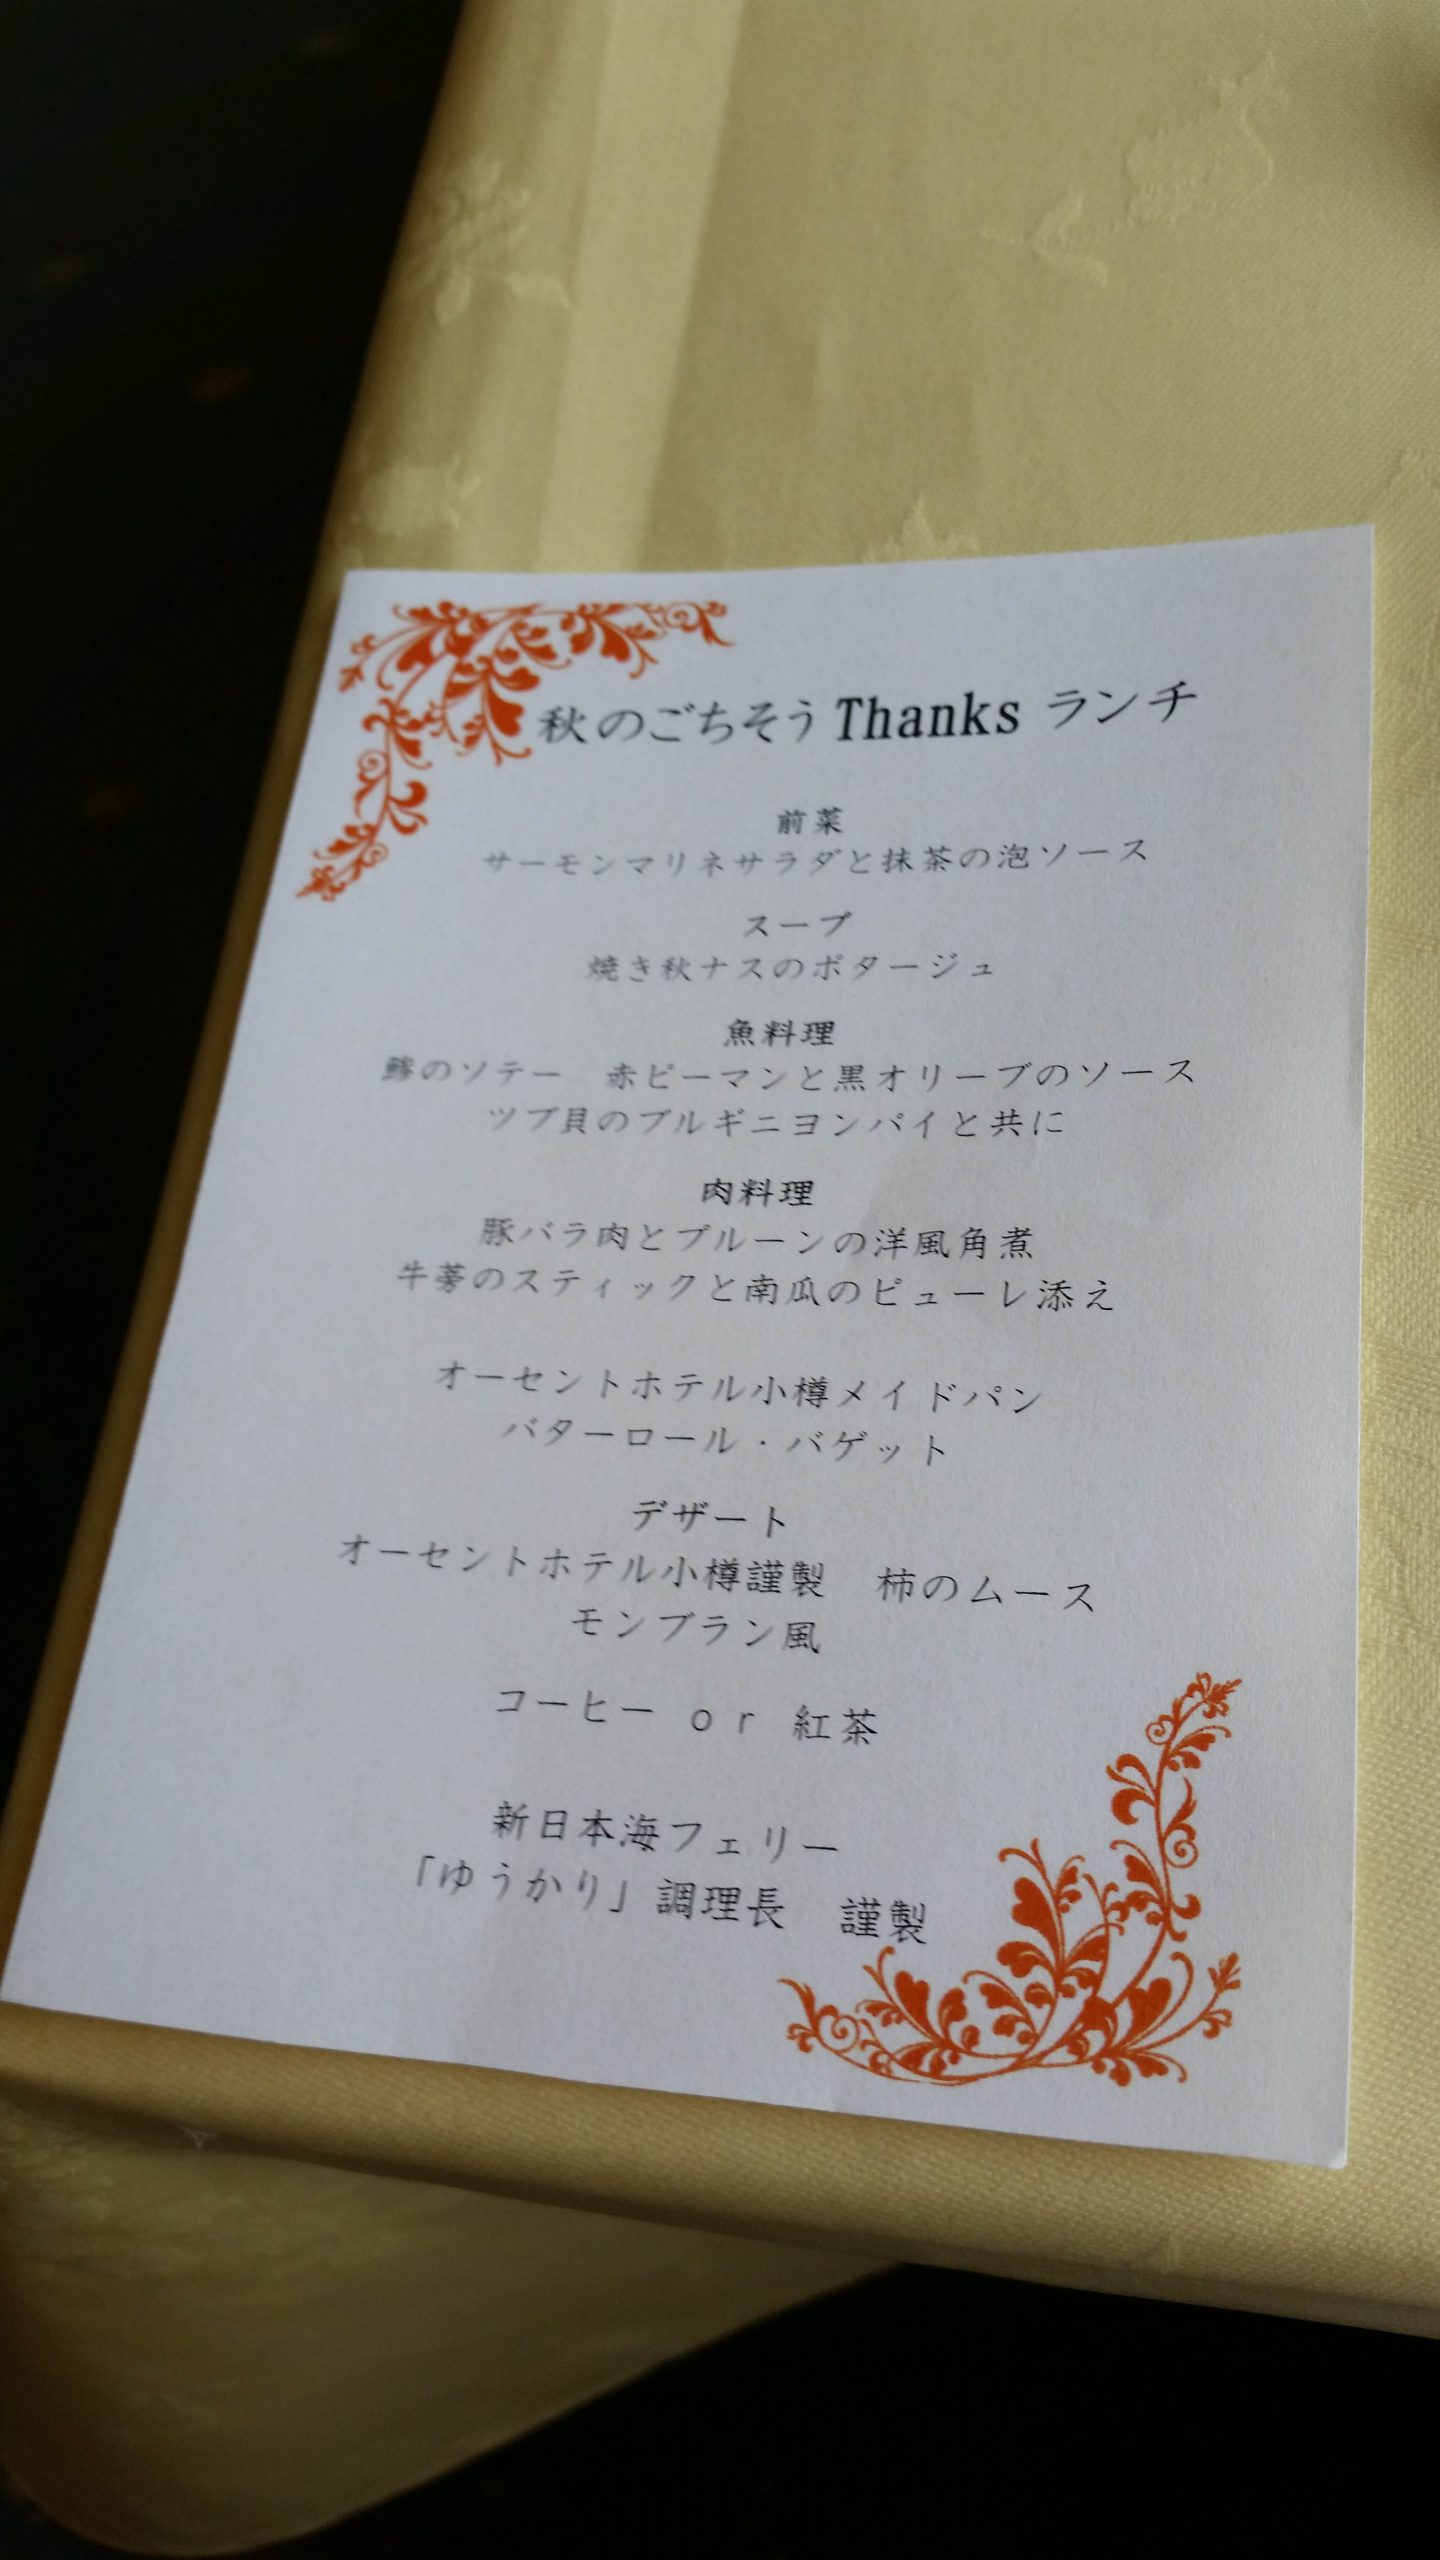 秋のごちそう Thanks ランチ
前菜
サーモンマリネサラダと抹茶の泡ソース
スープ
焼き秋ナスのポタージュ
魚料理
のソテー　赤ピーマンと黒オリーブのソース
ツブ貝のブルギニヨンパイと共に
肉料理
豚バラ肉とプルーンの洋風角煮
牛蒡のスティックと南瓜のピューレ添え
オーセントホテル小樽メイドパン
バターロール・バゲット
デザート
オーセントホテル小樽謹製　柿のムース
モンブラン風
コーヒー or 紅茶
新日本海フェリー
「ゆうかり」調理長　謹製